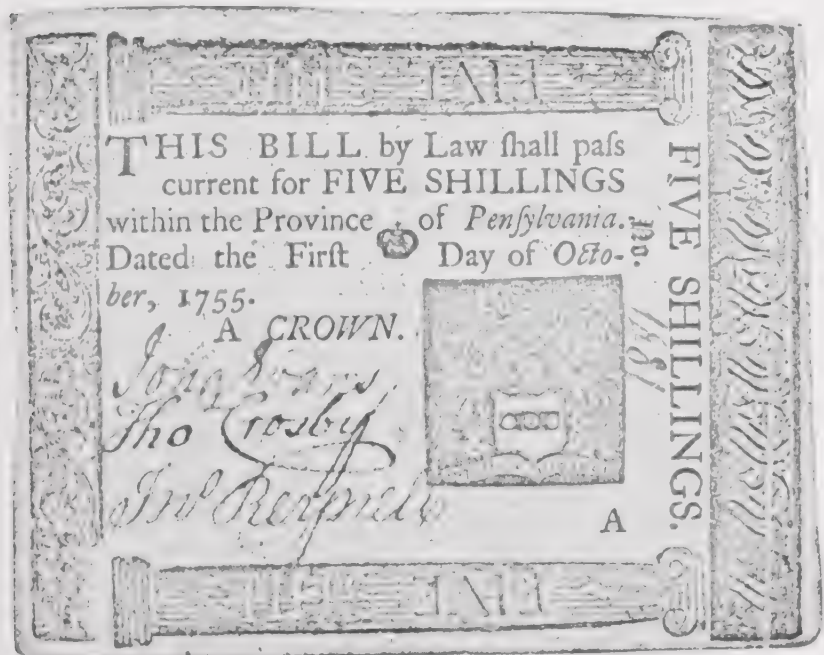 THIS BILL by Law ſhall paſs
current for FIVE SHILLINGS
within the Province of Penſylvania.
Dated the Firſt Day of Octo-
ber, 1755.
A CROWN.
Tho Crosby
Jno
A
No.
FIVE SHILLINGS.